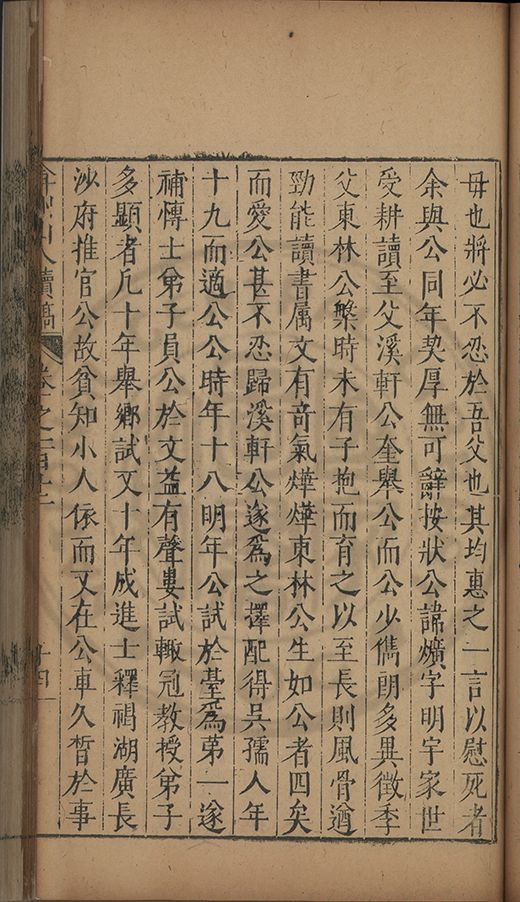 毋也將必不忍於吾父也其均惠之一言以慰死者
余與公同年契厚無可辭按狀公諱爌字明宇家世
受耕讀至父溪軒公奎舉公而公少儁朗多異徵季
父東林公槃時未有子抱而育之以至長則風骨遒
勁能讀書属文有奇氣燁燁東林公生如公者四矣
而愛公甚不忍歸溪軒公遂爲之擇配得吳孺人年
十九而適公公時年十八明年公試於臺爲第一遂
補慱士弟子員公於文益有聲婁試輙冠教授弟子
多顯者凡十年舉鄉試又十年成進士釋褐湖廣長
沙府推官公故貧知小人依而又在公車久晳於事
山人續稿 卷之一百廿二 十四